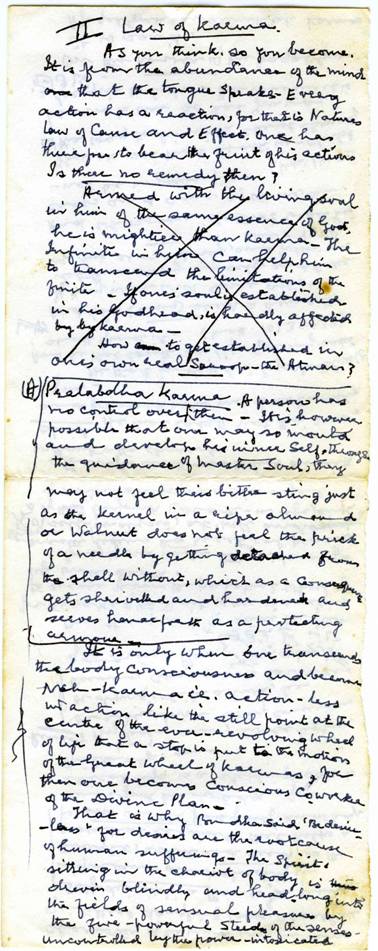 II Law of Karma.
As you think, so you become.
It is from the abundance of the mind
that the tongue speaks - Every
action has a reaction, for that is Natures
law of Cause and Effect. One has
therefore, to bear the fruit of his actions
Is there no remedy then?
Armed with the living soul
in him of the same essence of God,
he is mightier than karma - The
Infinite in him Can help him
to transcend the limitations of the
finite - If one's soul is established
in his Godhead, is hardly affected
by karma -
How to get established in
one's own real Saroop - the Atman?
(A) Pralabdha Karma. A person has
no control over them - It is however
possible that one may so mould
and develop his inner Self, through
the guidance of Master Soul, they
may not feel their bitter sting just
as the kernel in a ripe almond
or walnut does not feel the prick
of a needle by getting detached from
the shell without, which as a consequence
gets shrivelled and hardened and
serves henceforth as a protecting
armour -
It is only when one transcends
the body consciousness and becomes
Neh-karma i.e. action-less
in action like the still point at the
centre of the ever-revolving wheel
of life that a stop is put to the motion
of the Great Wheel of karmas, for
then one becomes Conscious Coworker
of the Divine Plan -
That is why Buddha said "Be desire
-less" for desires are the root cause
of human sufferings - The Spirit
sitting in the chariot of body, is
driven blindly and headlong into
the fields of sensual pleasures by
the five-powerful Steeds of the senses
uncontrolled by the